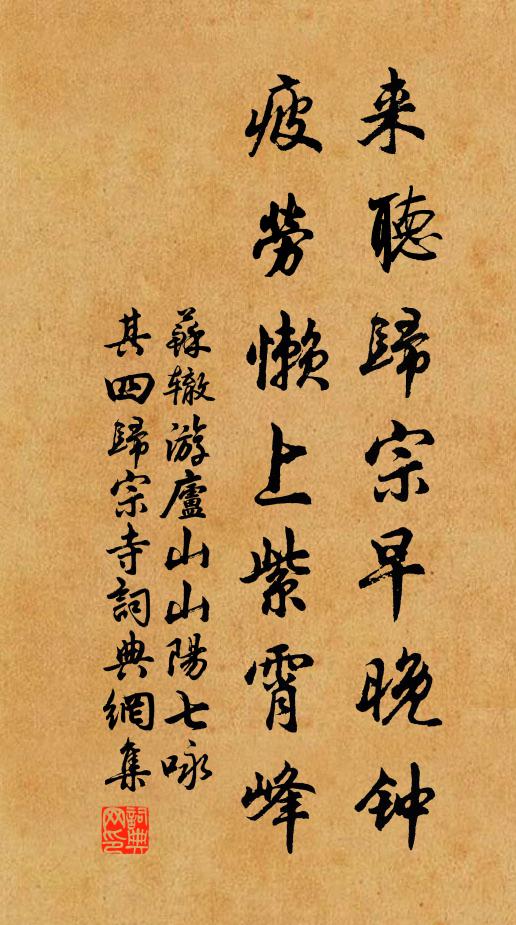 来聽歸宗早晚钟
疲勞懒上紫霄峰
蘇辙游廬山山陽七咏
其四歸宗寺詞典網集
詞典网印